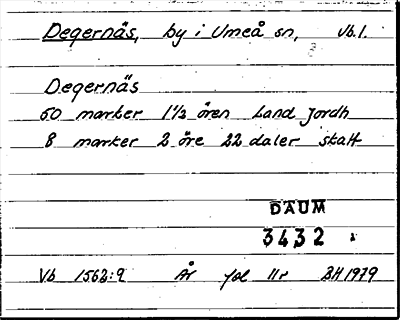 Degernäs, by i Umeå sn, Vb.l.
Degernäs
60 marker 1½ ören Land Jordh
8 marker 2 öre 22 daler skatt
DAUM
3432
Vb 1562:9 År fol 11r BH 1979